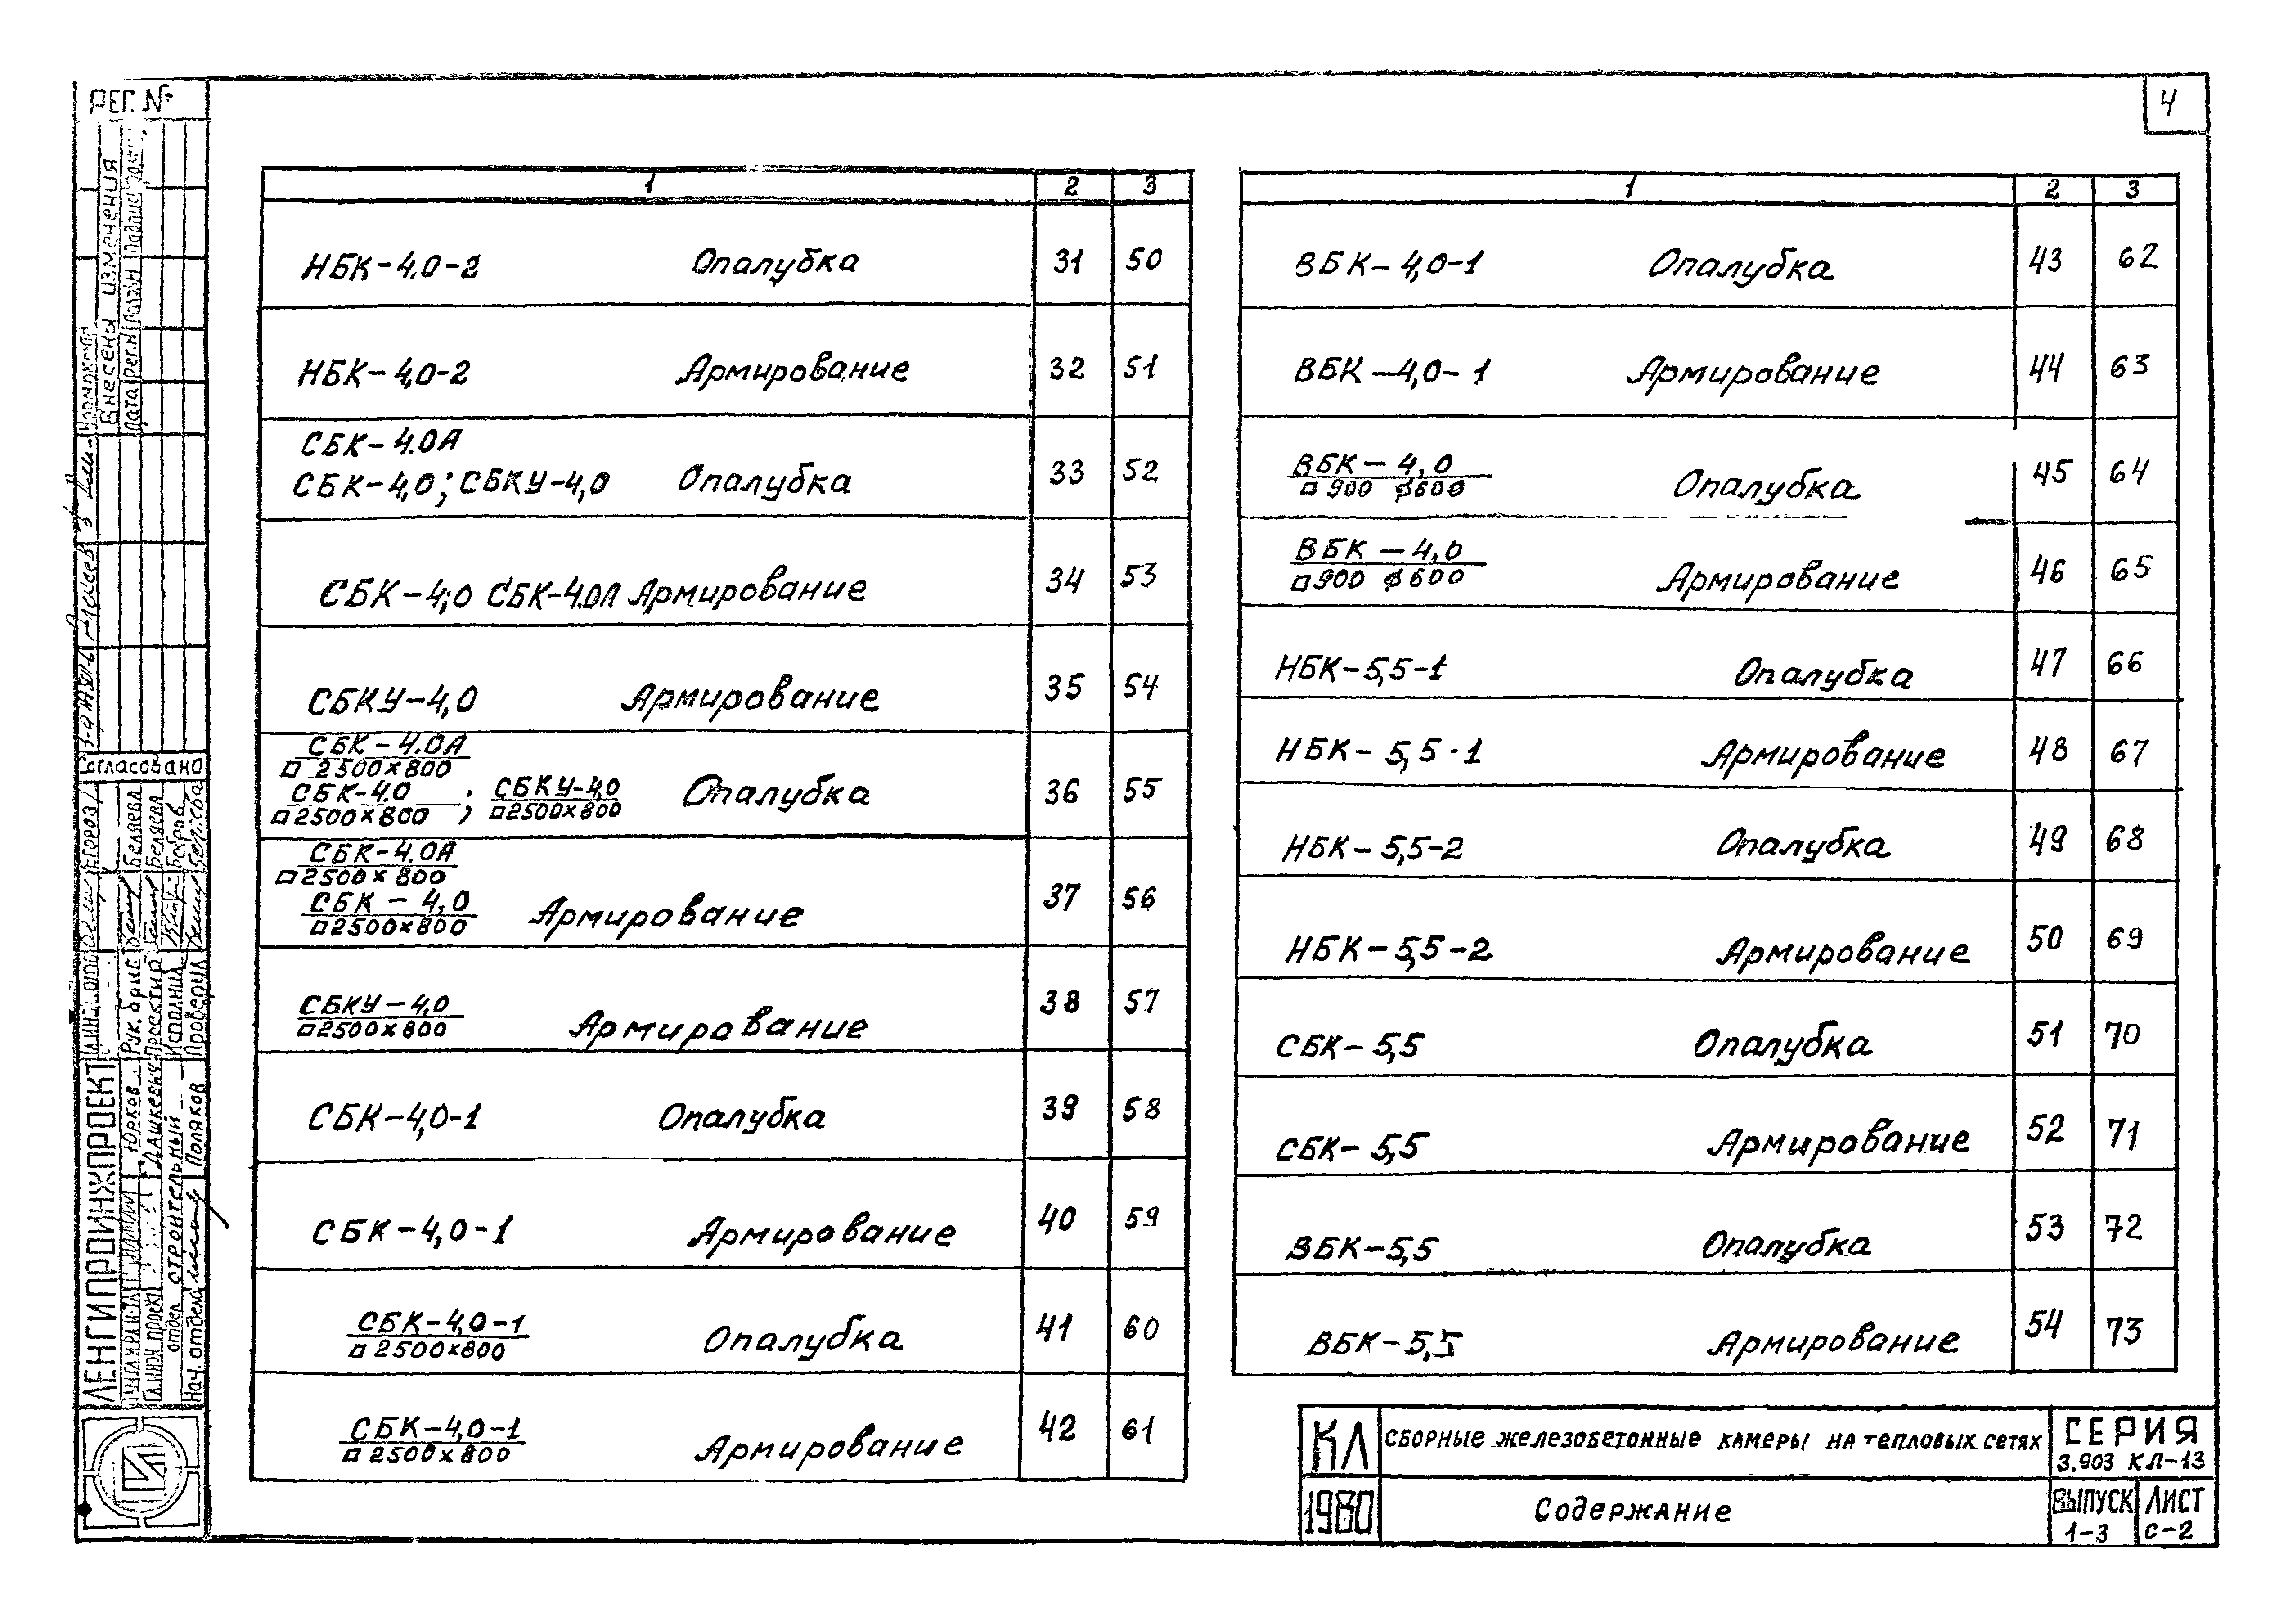 РЕГ. №
4
1 2 3
НБК-4,0-2 Опалубка 31 50
НБК-4,0-2 Армирование 32 51
СБК-4.0А
СБК-4,0; СБКУ-4,0 Опалубка 33 52
СБК-4,0 СБК-4.0А Армирование 34 53
СБКУ-4,0 Армирование 35 54
СБК-4.0А
□ 2500×800
СБК-4.0 ; СБКУ-4,0 Опалубка 36 55
□2500×800 □2500×800
СБК-4.0А
□2500×800
СБК-4,0 Армирование 37 56
□2500×800
СБКУ-4,0 Армирование 38 57
□2500×800
СБК-4,0-1 Опалубка 39 58
СБК-4,0-1 Армирование 40 59
СБК-4,0-1 Опалубка 41 60
□2500×800
СБК-4,0-1 Армирование 42 61
□2500×800
1 2 3
ВБК-4,0-1 Опалубка 43 62
ВБК-4,0-1 Армирование 44 63
ВБК-4,0 Опалубка 45 64
□ 900 ϕ600
ВБК-4,0 Армирование 46 65
□900 ϕ600
НБК-5,5-1 Опалубка 47 66
НБК-5,5-1 Армирование 48 67
НБК-5,5-2 Опалубка 49 68
НБК-5,5-2 Армирование 50 69
СБК-5,5 Опалубка 51 70
СБК-5,5 Армирование 52 71
ВБК-5,5 Опалубка 53 72
ВБК-5,5 Армирование 54 73
КЛ СБОРНЫЕ ЖЕЛЕЗОБЕТОННЫЕ КАМЕРЫ НА ТЕПЛОВЫХ СЕТЯХ СЕРИЯ
3.903 КЛ-13
1980 Содержание ВЫПУСК ЛИСТ
1-3 С-2
Внесены изменения
Дата Рег.N
Согласовано
ЛЕНГИПРОИНЖПРОЕКТ
Рук. бриг. Беляева
Беляева
Исполнил Бобров
Проверил
Юрков
Дашкевич
отдел строительный
Нач. отдела Поляков